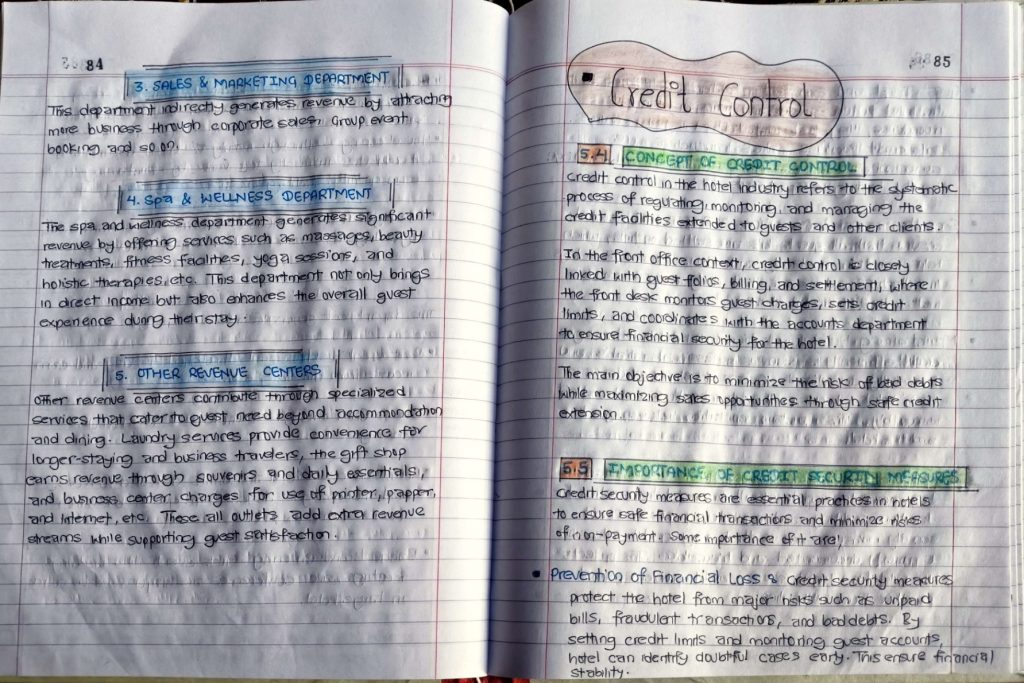 84
3. SALES & MARKETING DEPARTMENT
This department indirectly generates revenue by attracting
more business through corporate sales, Group event
booking, and so on.
4. Spa & WELLNESS DEPARTMENT
The spa and wellness department generates significant
revenue by offering services such as massages, beauty
treatments, fitness facilities, yoga sessions, and
holistic therapies, etc. This department not only brings
in direct income but also enhances the overall guest
experience during their stay.
5. OTHER REVENUE CENTERS
Other revenue centers contribute through specialized
services that cater to guest need beyond accommondation
and dining. Laundry services provide convenience for
longer-staying and business travelers, the gift shop
earns revenue through souvenirs and daily essentials,
and business center charges for use of printer, papper,
and internet, etc. These all outlets add extra revenue
streams while supporting guest satisfaction.
85
Credit Control
5.4 CONCEPT OF CREDIT CONTROL
Credit control in the hotel industry refers to the systematic
process of regulating, monitoring, and managing the
credit facilities extended to guests and other clients.
In the front office context, credit control is closely
linked with guest folios, billing, and settlement, where
the front desk monitors guest charges, sets credit
limits, and coordinates with the accounts department
to ensure financial security for the hotel.
The main objective is to minimize the risk of bad debts
while maximizing sales opportunities through safe credit
extension.
5.5 IMPORTANCE OF CREDIT SECURITY MEASURES
Credit security measures are essential practices in hotels
to ensure safe financial transactions and minimize risks
of non-payment. Some importance of it are:
• Prevention of Financial Loss : Credit security measures
protect the hotel from major risks such as unpaid
bills, fraudulent transactions, and bad debts. By
setting credit limits and monitoring guest accounts,
hotel can identify doubtful cases early. This ensure financial
stability.